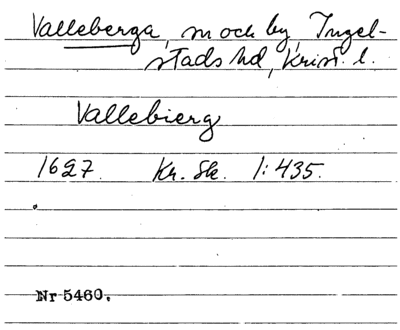 Valleberga, sn och by, Ingel-
stads hd, Krist. l.
Vallebierg
1627. Kr. Sk. 1:435.
Nr 5460.